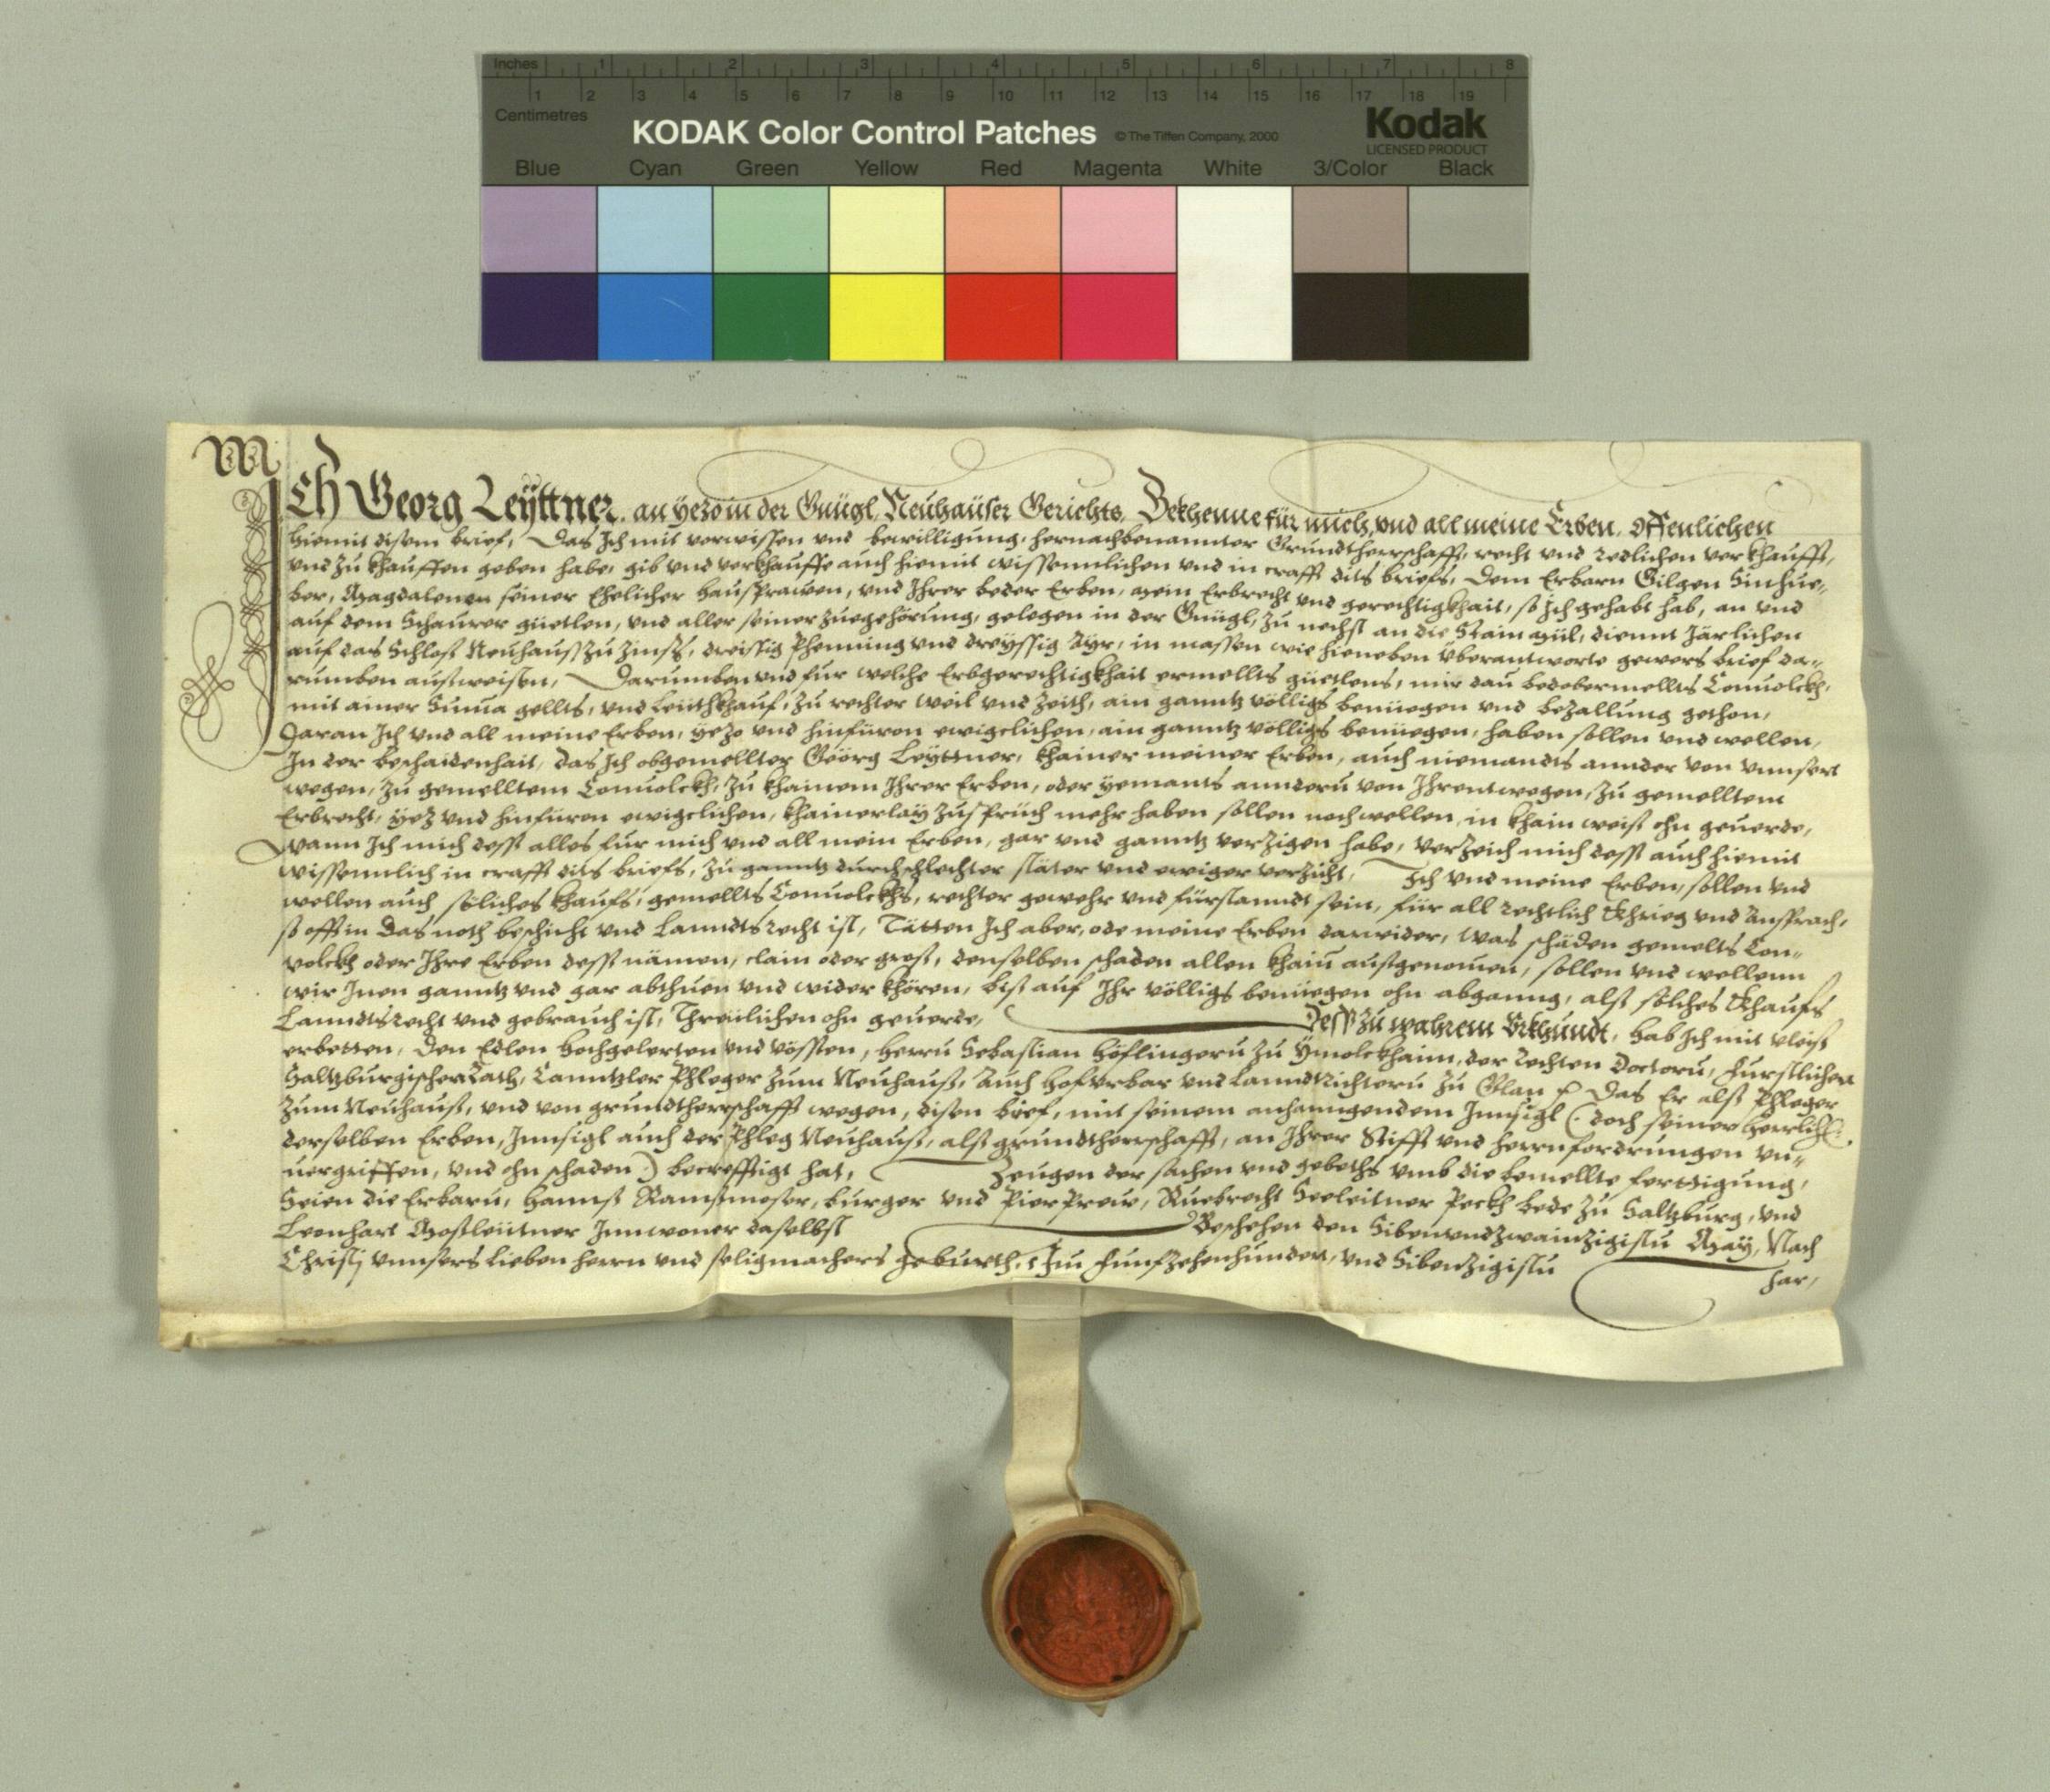 Inches 1 2 3 4 5 6 7 8
1 2 3 4 5 6 7 8 9 10 11 12 13 14 15 16 17 18 19
Centimetres
KODAK Color Control Patches © The Tiffen Company, 2000 Kodak
LICENSED PRODUCT
Blue Cyan Green Yellow Red Magenta White 3/Color Black
M
Ich Georg Leÿttner, an yezo in der Gnügl, Neuhauser Gerichts, Bekhenne für mich, vnd all meine Erben, offenlichen
hiemit disem brief, Das Ich mit vorwissen vnd bewilligung, hernachbenannter Grundtherrschafft, recht vnd redlichen verkhaufft,
vnd zu khauffen geben habe, gib vnd verkhauffe auch hiemit wissenntlichen vnd in crafft dits briefs, Dem Erbarn Gilgen Sinhue-
ber, Magdalenen seiner Ehelicher hausfrawen, vnd Ihrer beder Erben, mein Erbrecht vnd gerechtigkhait, so Ich gehabt hab, an vnd
auf dem Schaurer güetlen, vnd aller seiner zuegehörung, gelegen in der Gnügl, zu nechst an die Stain mül, diennt Järlichen
auf das Schloß Neuhauss zu zinß, dreissig Phenning vnd dreyssig Ayr, in massen wie hieneben überantworte gewers brief da-
rumben außweisen, Darumben vnd für welche Erbgerechtigkhait ermellts güetlens, mir dan bedobermellts Conuolckh,
mit ainer Suma gellts, vnd Leüthkhauf, zu rechter weil vnd zeith, ain ganntz völligs benüegen vnd bezallung gethon,
Daran Ich vnd all meine Erben, yezo vnd hinfüron ewigclichen, ain ganntz völligs benüegen, haben sollen vnd wellen,
In der beschaidenhait, das Ich obgemellter Geörg Leÿttner, khainer meiner Erben, auch niemandts annder von vnnsert
wegen, zu gemelltem Conuolckh, zu khainem Ihrer Erben, oder yemants anndern von Ihrentwegen, zu gemelltem
Erbrecht, yez vnd hinfüron ewigclichen, khainerlay zusprüch mehr haben sollen noch wellen, in khain weiß ohn geuerde,
Wann Ich mich dess alles für mich vnd all mein Erben, gar vnd ganntz verzigen habe, Verzeich mich dess auch hiemit
wissenntlich in crafft dits briefs, zu ganntz durchschlechter stäter vnd ewiger verzicht, Ich vnd meine Erben, sollen vnd
wellen auch söliches khaufs, gemellts Conuolckhs, rechter gewehr vnd fürstanndt sein, für all rechtlich khrieg vnd Ansprach,
so offt in das noth beschicht vnd Lanndts recht ist, Tätten Ich aber, ode meine Erben darwider, was schäden gemelts Con-
volckh oder Ihre Erben dess nämen, clain oder groß, denselben schaden allen khain außgenomen, sollen vnd wellenn
wir Inen ganntz vnd gar abthuen vnd wider khören, biß auf Ihr völligs benüegen ohn abganng, alß solches khaufs
Lanndtsrecht vnd gebrauch ist, Threülichen ohn geuerde, Dess zu wahrem Urkhundt, hab Ich mit vleiß
erbetten, Den Edlen Hochgelerten vnd vössten, herrn Sebastian Höflingern zu Ymolckhaim, der Rechten Doctorn, Fürstlichen
Saltzburgischen Rath, Canntzler Phleger zum Neuhauß, Auch hofurbar vnd Lanndtrichtern zu Glan Das Er alß Phleger
zum Neuhauß, vnd von grundtherrschafft wegen, disen brief, mit seinem anhanngendem Innsigl (doch seiner herrlich:
derselben Erben, Innsigl auch der Phleg Neuhauß, alß grundtherrschafft, an Ihrer Stifft vnd herrnforderungen vn-
uergriffen, vnd ohn schaden) becrefftigt hat, Zeugen der sachen vnd gebeths vmb die bemellte ferttigung,
Seien die Erbarn, Hannß Ramßmoser, burger vnd PierPrew, Ruebrecht Seeleitner Peckh bede zu Saltzburg, vnd
Leonhart Mosleüttner Innwoner daselbst Beschehen den Sibenvndzwainzigisten May, Nach
Christj vnnsers lieben herrn vnd seligmachers geburth, Im Funfzehenhundert, vnd Sibenzigisten
Jar,